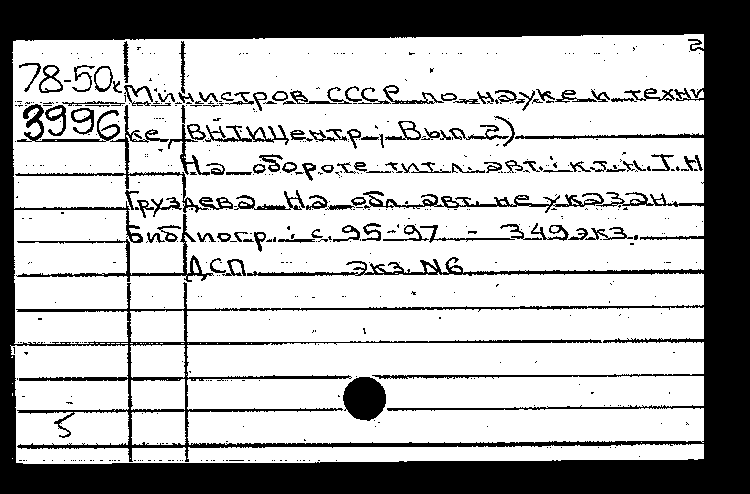 2
78-50к Министров СССР по науке и техни
3996 ке, ВНТИЦентр; Вып. 2)
На обороте тит. л. авт.: к.т.н. Т.Н.
Груздева. На обл. авт. не указан.
Библиогр.: с. 95-97. - 349 экз.
ДСП. экз. N6
5